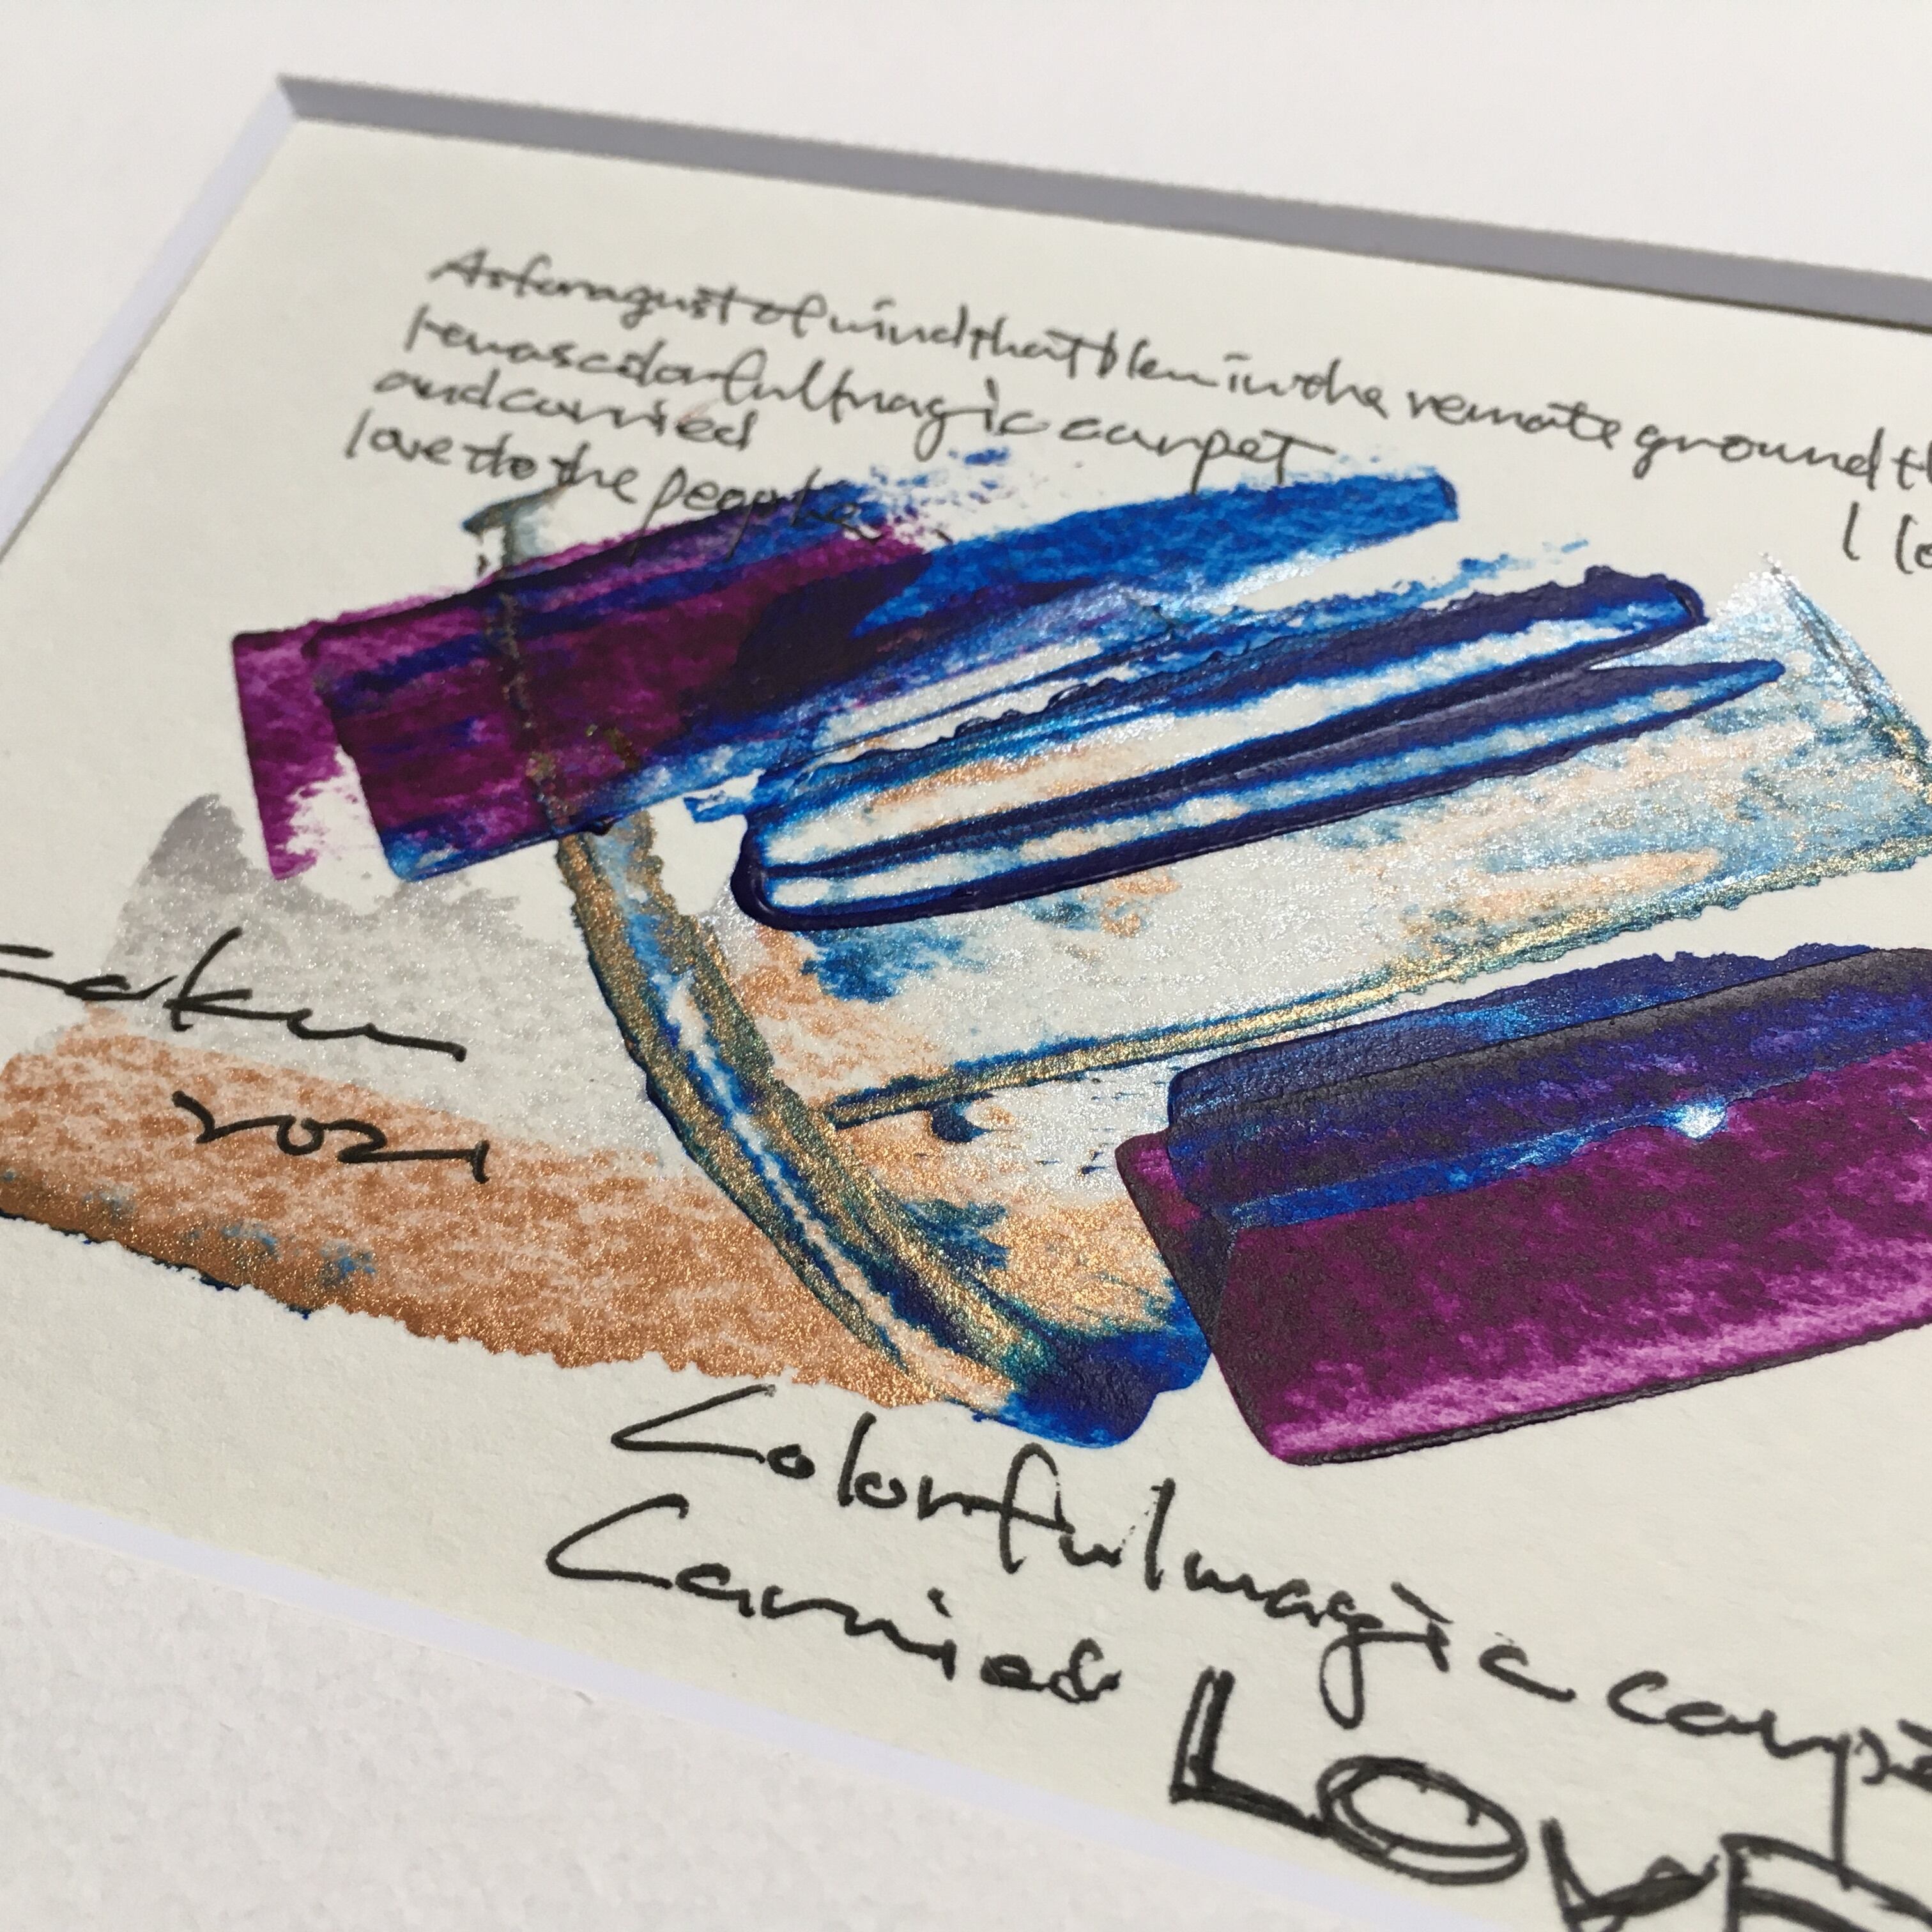 As for a gust of wind that blew in the remote ground th
was colorful magic carpet
and carried
love to the people
I lo
2021
Colorful magic carpe
Carries
LOVE